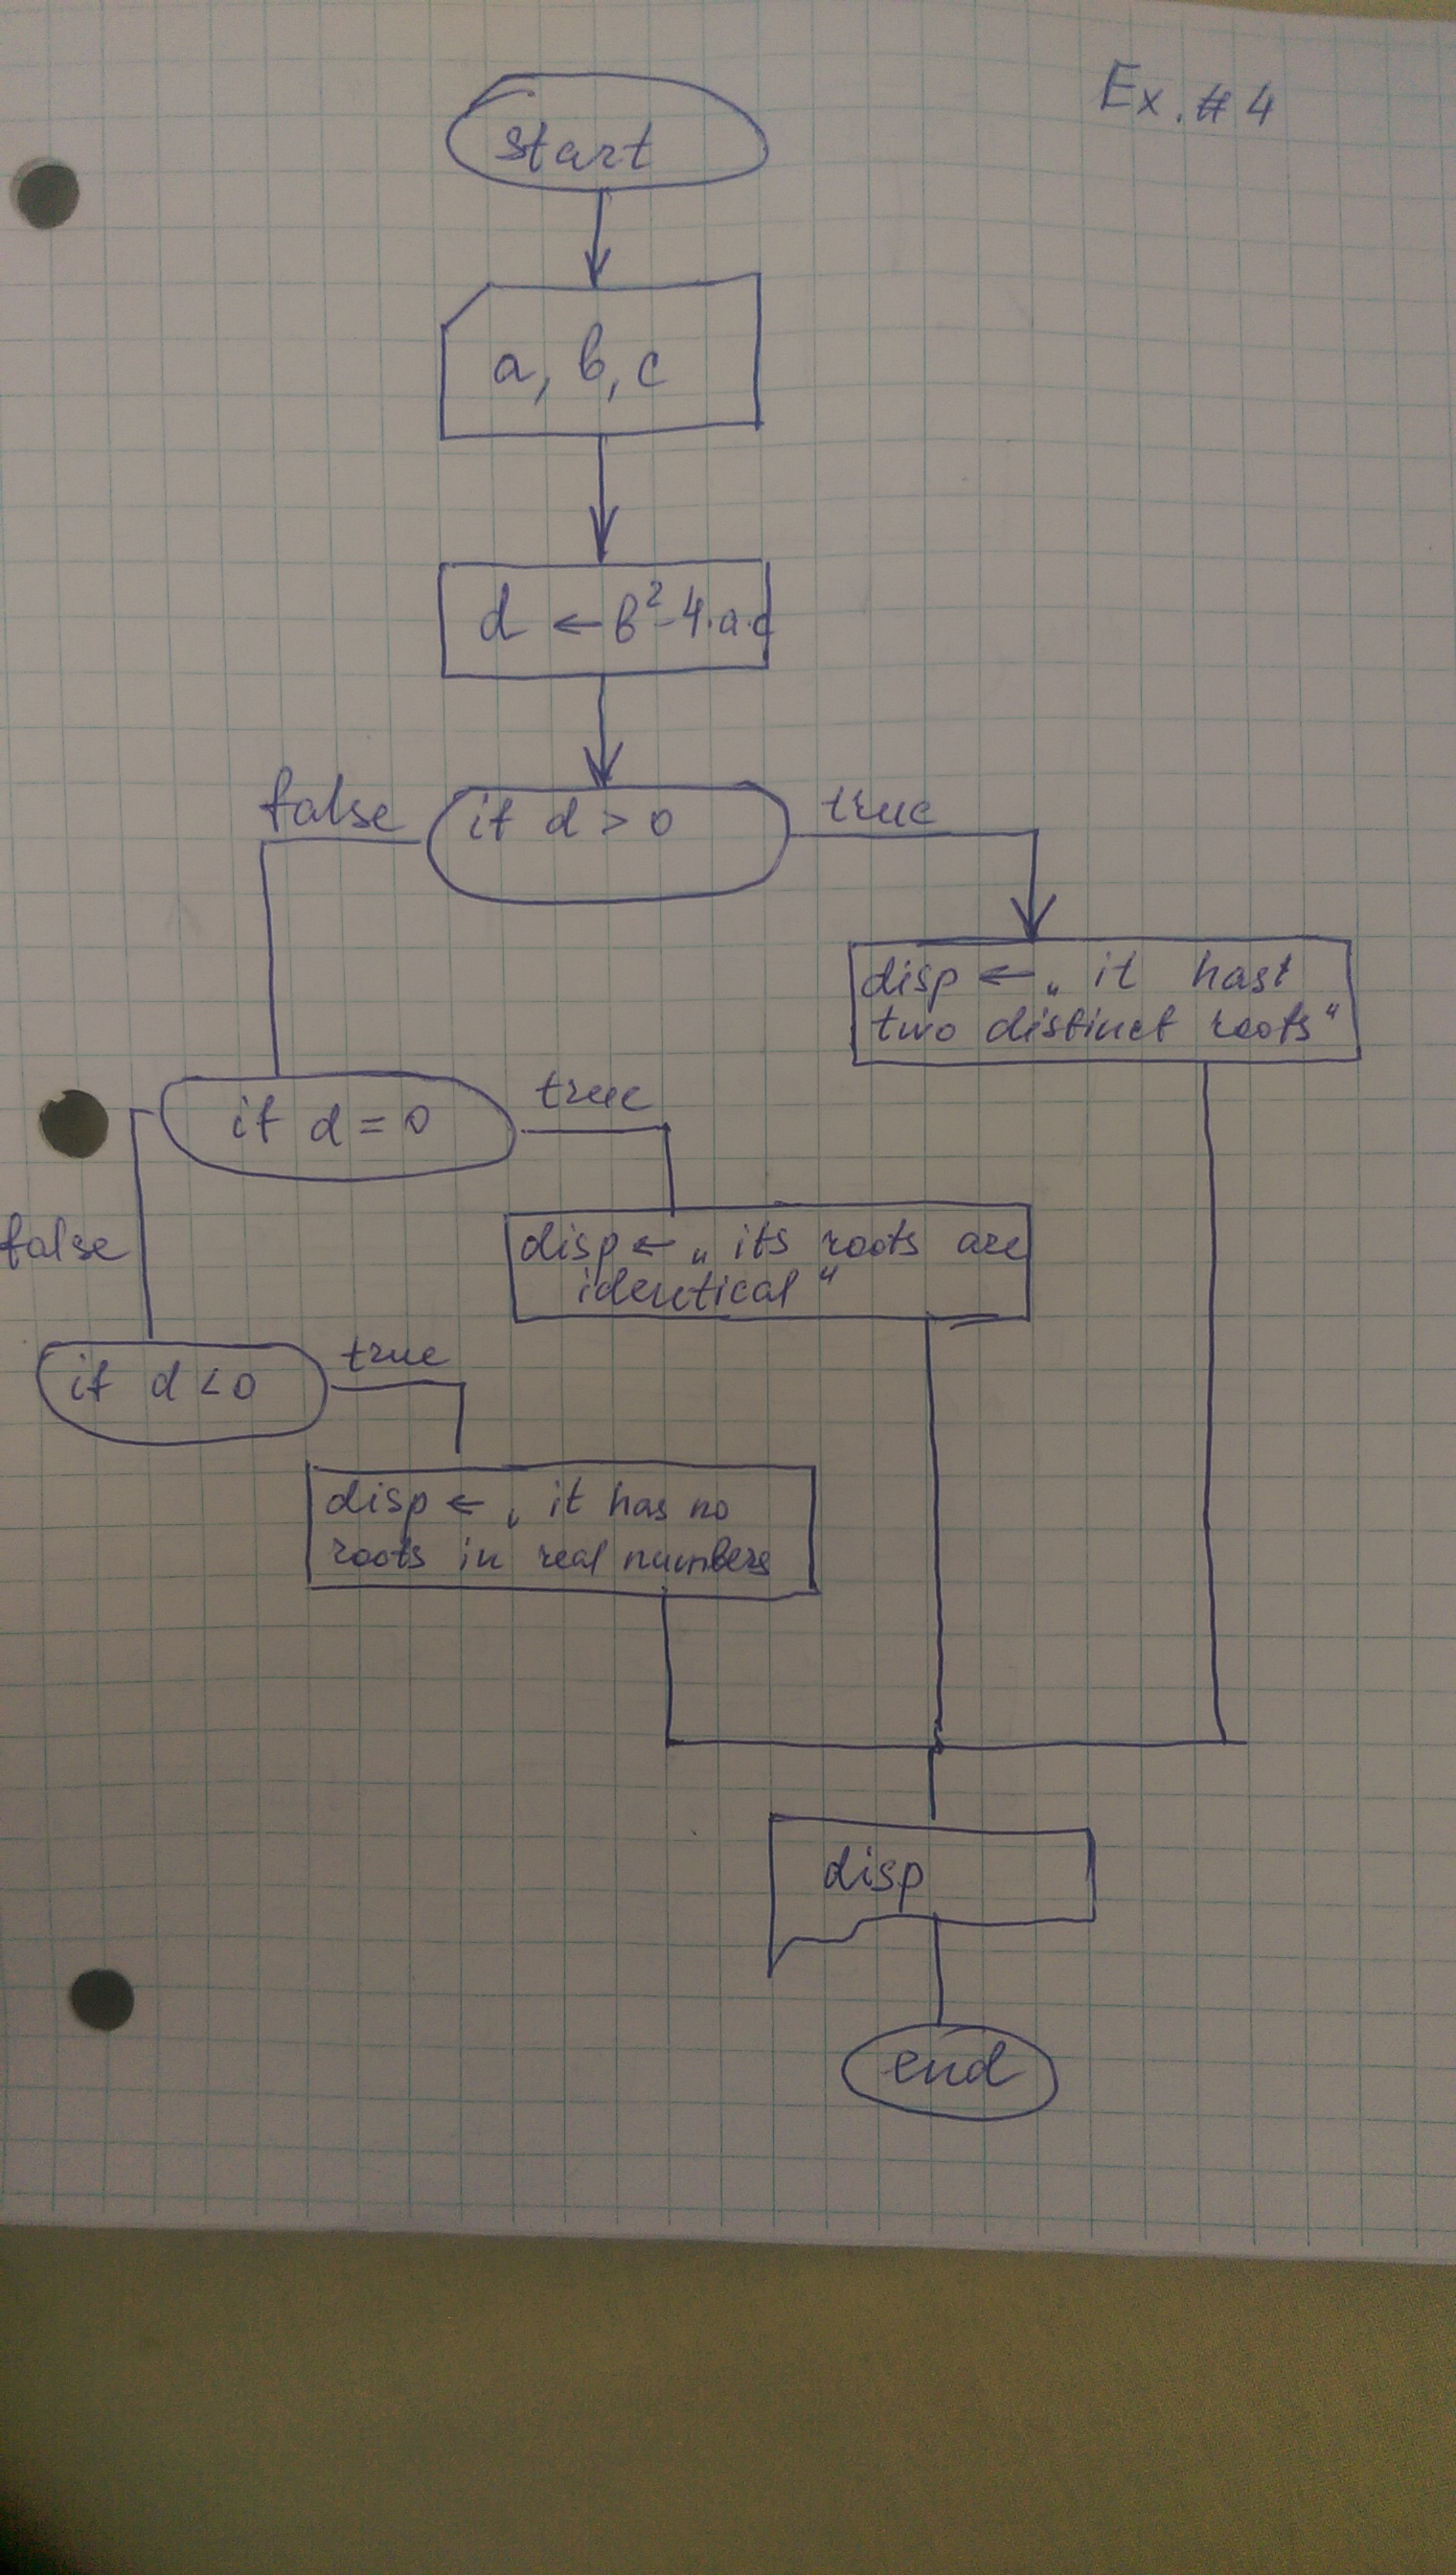 Ex. # 4
start
a, b, c
d ← b²-4·a·c
false
if d > 0
true
disp ← „ it hast
two distinct roots“
if d = 0
true
false
disp ← „ its roots are
identical “
if d < 0
true
disp ← „ it has no
roots in real numbers
disp
end